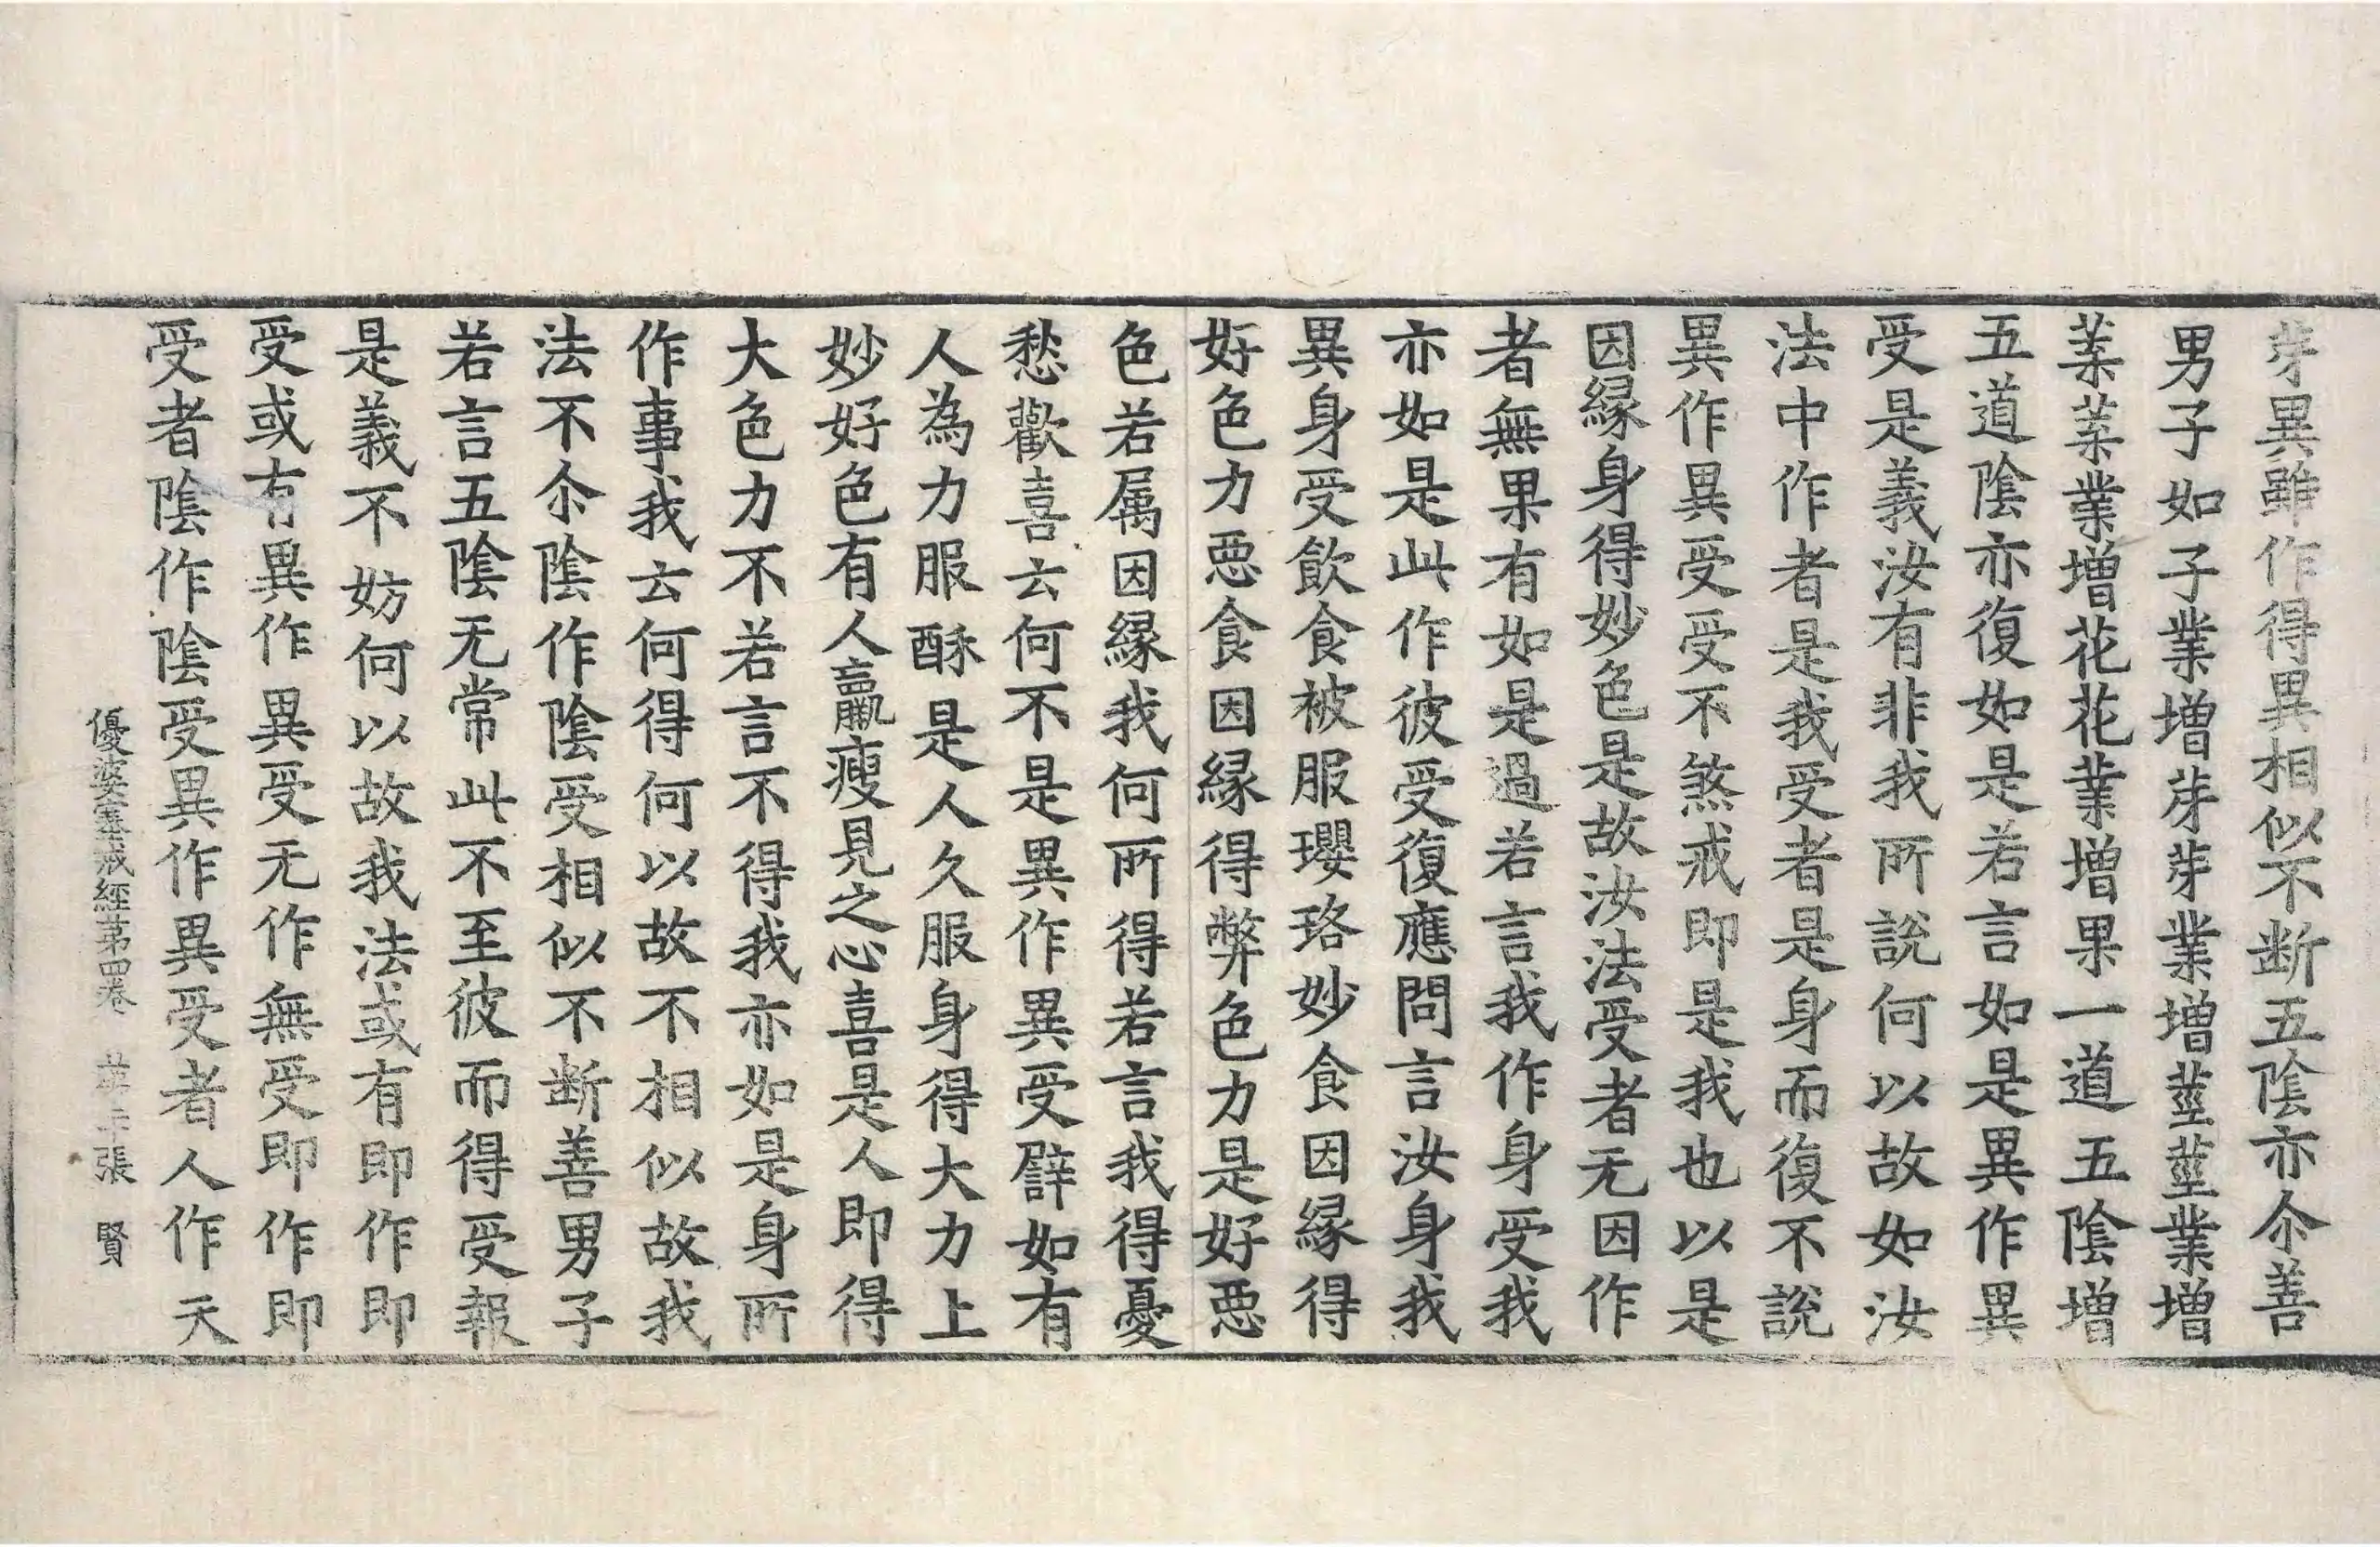 芽異雖作得異相似不断五陰亦尒善
男子如子業增芽芽業增莖莖業增
葉葉業增花花業增果一道五陰增
五道陰亦復如是若言如是異作異
受是義汝有非我所說何以故如汝
法中作者是我受者是身而復不說
異作異受受不煞戒即是我也以是
因縁身得妙色是故汝法受者无因作
者無果有如是過若言我作身受我
亦如是此作彼受復應問言汝身我
異身受飲食被服瓔珞妙食因縁得
好色力惡食因縁得弊色力是好惡
色若属因縁我何所得若言我得憂
愁歡喜云何不是異作異受譬如有
人為力服酥是人久服身得大力上
妙好色有人羸瘦見之心喜是人即得
大色力不若言不得我亦如是身所
作事我云何得何以故不相似故我
法不尒陰作陰受相似不断善男子
若言五陰无常此不至彼而得受報
是義不妨何以故我法或有即作即
受或有異作異受无作無受即作即
受者陰作陰受異作異受者人作天
優婆塞戒經第四卷 張 賢